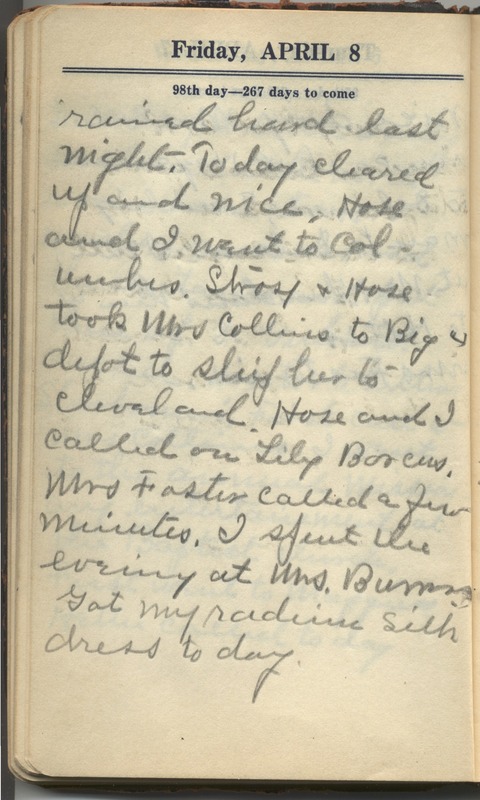 Friday, APRIL 8
98th day—267 days to come
rained hard last
night. Today cleared
up and nice, Hose
and I went to Col-
umbus. Strosy & Hose
took Mrs Collins to Big 4
depot to ship her to
Cleveland. Hose and I
called on Lily Borcus.
Mrs Foster called a few
minutes. I spent the
evening at Mrs. Burns.
Got my radium silk
dress to day.